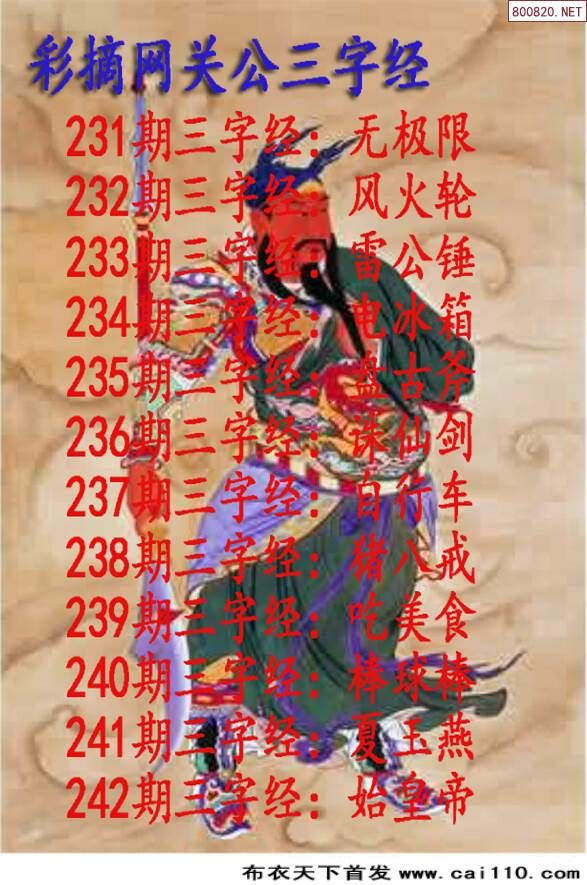 800820.NET
彩摘网关公三字经
231期三字经：无极限
232期三字经：风火轮
233期三字经：雷公锤
234期三字经：电冰箱
235期三字经：盘古斧
236期三字经：诛仙剑
237期三字经：自行车
238期三字经：猪八戒
239期三字经：吃美食
240期三字经：棒球棒
241期三字经：夏玉燕
242期三字经：始皇帝
布衣天下首发 www.cai110.com